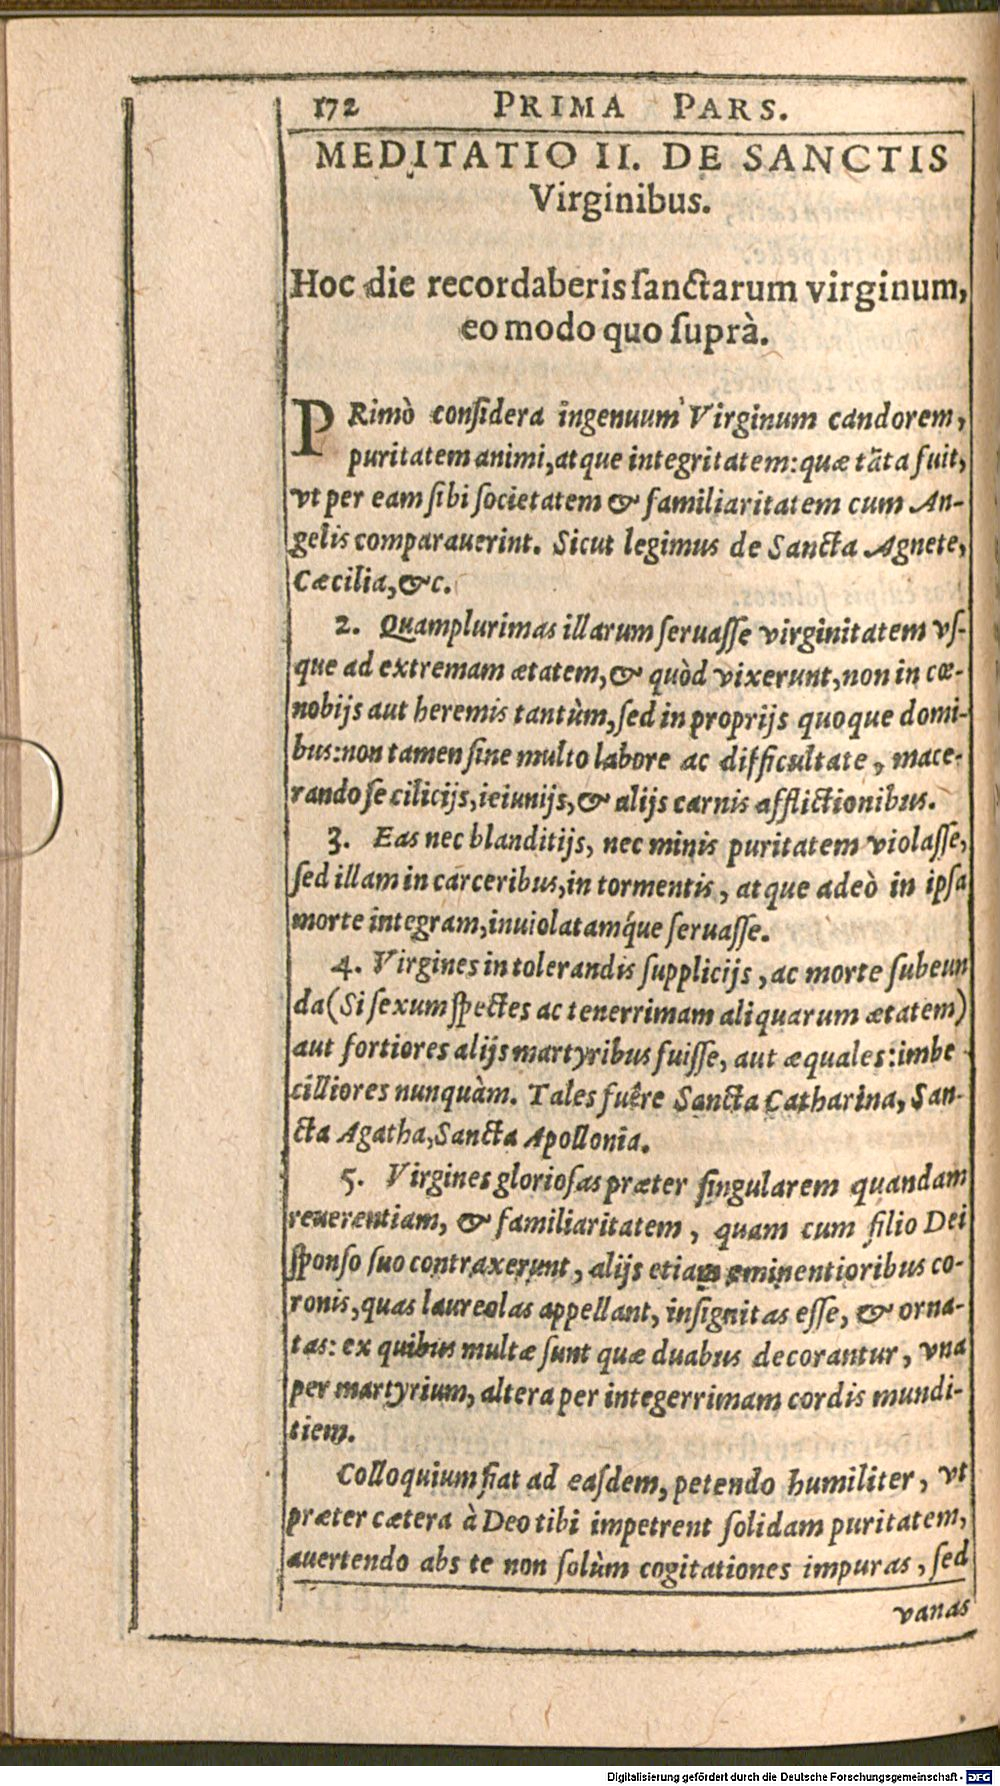 172 PRIMA PARS.
MEDITATIO II. DE SANCTIS
Virginibus.
Hoc die recordaberis ſanctarum virginum,
eo modo quo ſuprà.
PRimò conſidera ingenuum Virginum candorem,
puritatem animi, atque integritatem: quæ tāta fuit,
vt per eam ſibi ſocietatem & familiaritatem cum An-
gelis comparauerint. Sicut legimus de Sancta Agnete,
Cæcilia, &c.
2. Quamplurimas illarum ſeruaſſe virginitatem vſ-
que ad extremam ætatem, & quòd vixerunt, non in cœ-
nobijs aut heremis tantùm, ſed in proprijs quoque domi-
bus: non tamen ſine multo labore ac difficultate, mace-
rando ſe cilicijs, ieiunijs, & alijs carnis afflictionibus.
3. Eas nec blanditijs, nec minis puritatem violaſſe,
ſed illam in carceribus, in tormentis, atque adeò in ipſa
morte integram, inuiolatamq́ue ſeruaſſe.
4. Virgines in tolerandis ſupplicijs, ac morte ſubeun
da (Si ſexum ſpectes ac tenerrimam aliquarum ætatem)
aut fortiores alijs martyribus fuiſſe, aut æquales: imbe-
cilliores nunquàm. Tales fuêre Sancta Catharina, San-
cta Agatha, Sancta Apollonia.
5. Virgines glorioſas præter ſingularem quandam
reuerentiam, & familiaritatem, quam cum filio Dei
ſponſo ſuo contraxerunt, alijs etiam eminentioribus co-
ronis, quas laureolas appellant, inſignitas eſſe, & orna-
tas: ex quibus multæ ſunt quæ duabus decorantur, vna
per martyrium, altera per integerrimam cordis mundi-
tiem.
Colloquium fiat ad eaſdem, petendo humiliter, vt
præter cætera à Deo tibi impetrent ſolidam puritatem,
auertendo abs te non ſolùm cogitationes impuras, ſed
vanas
Digitalisierung gefördert durch die Deutsche Forschungsgemeinschaft - DFG